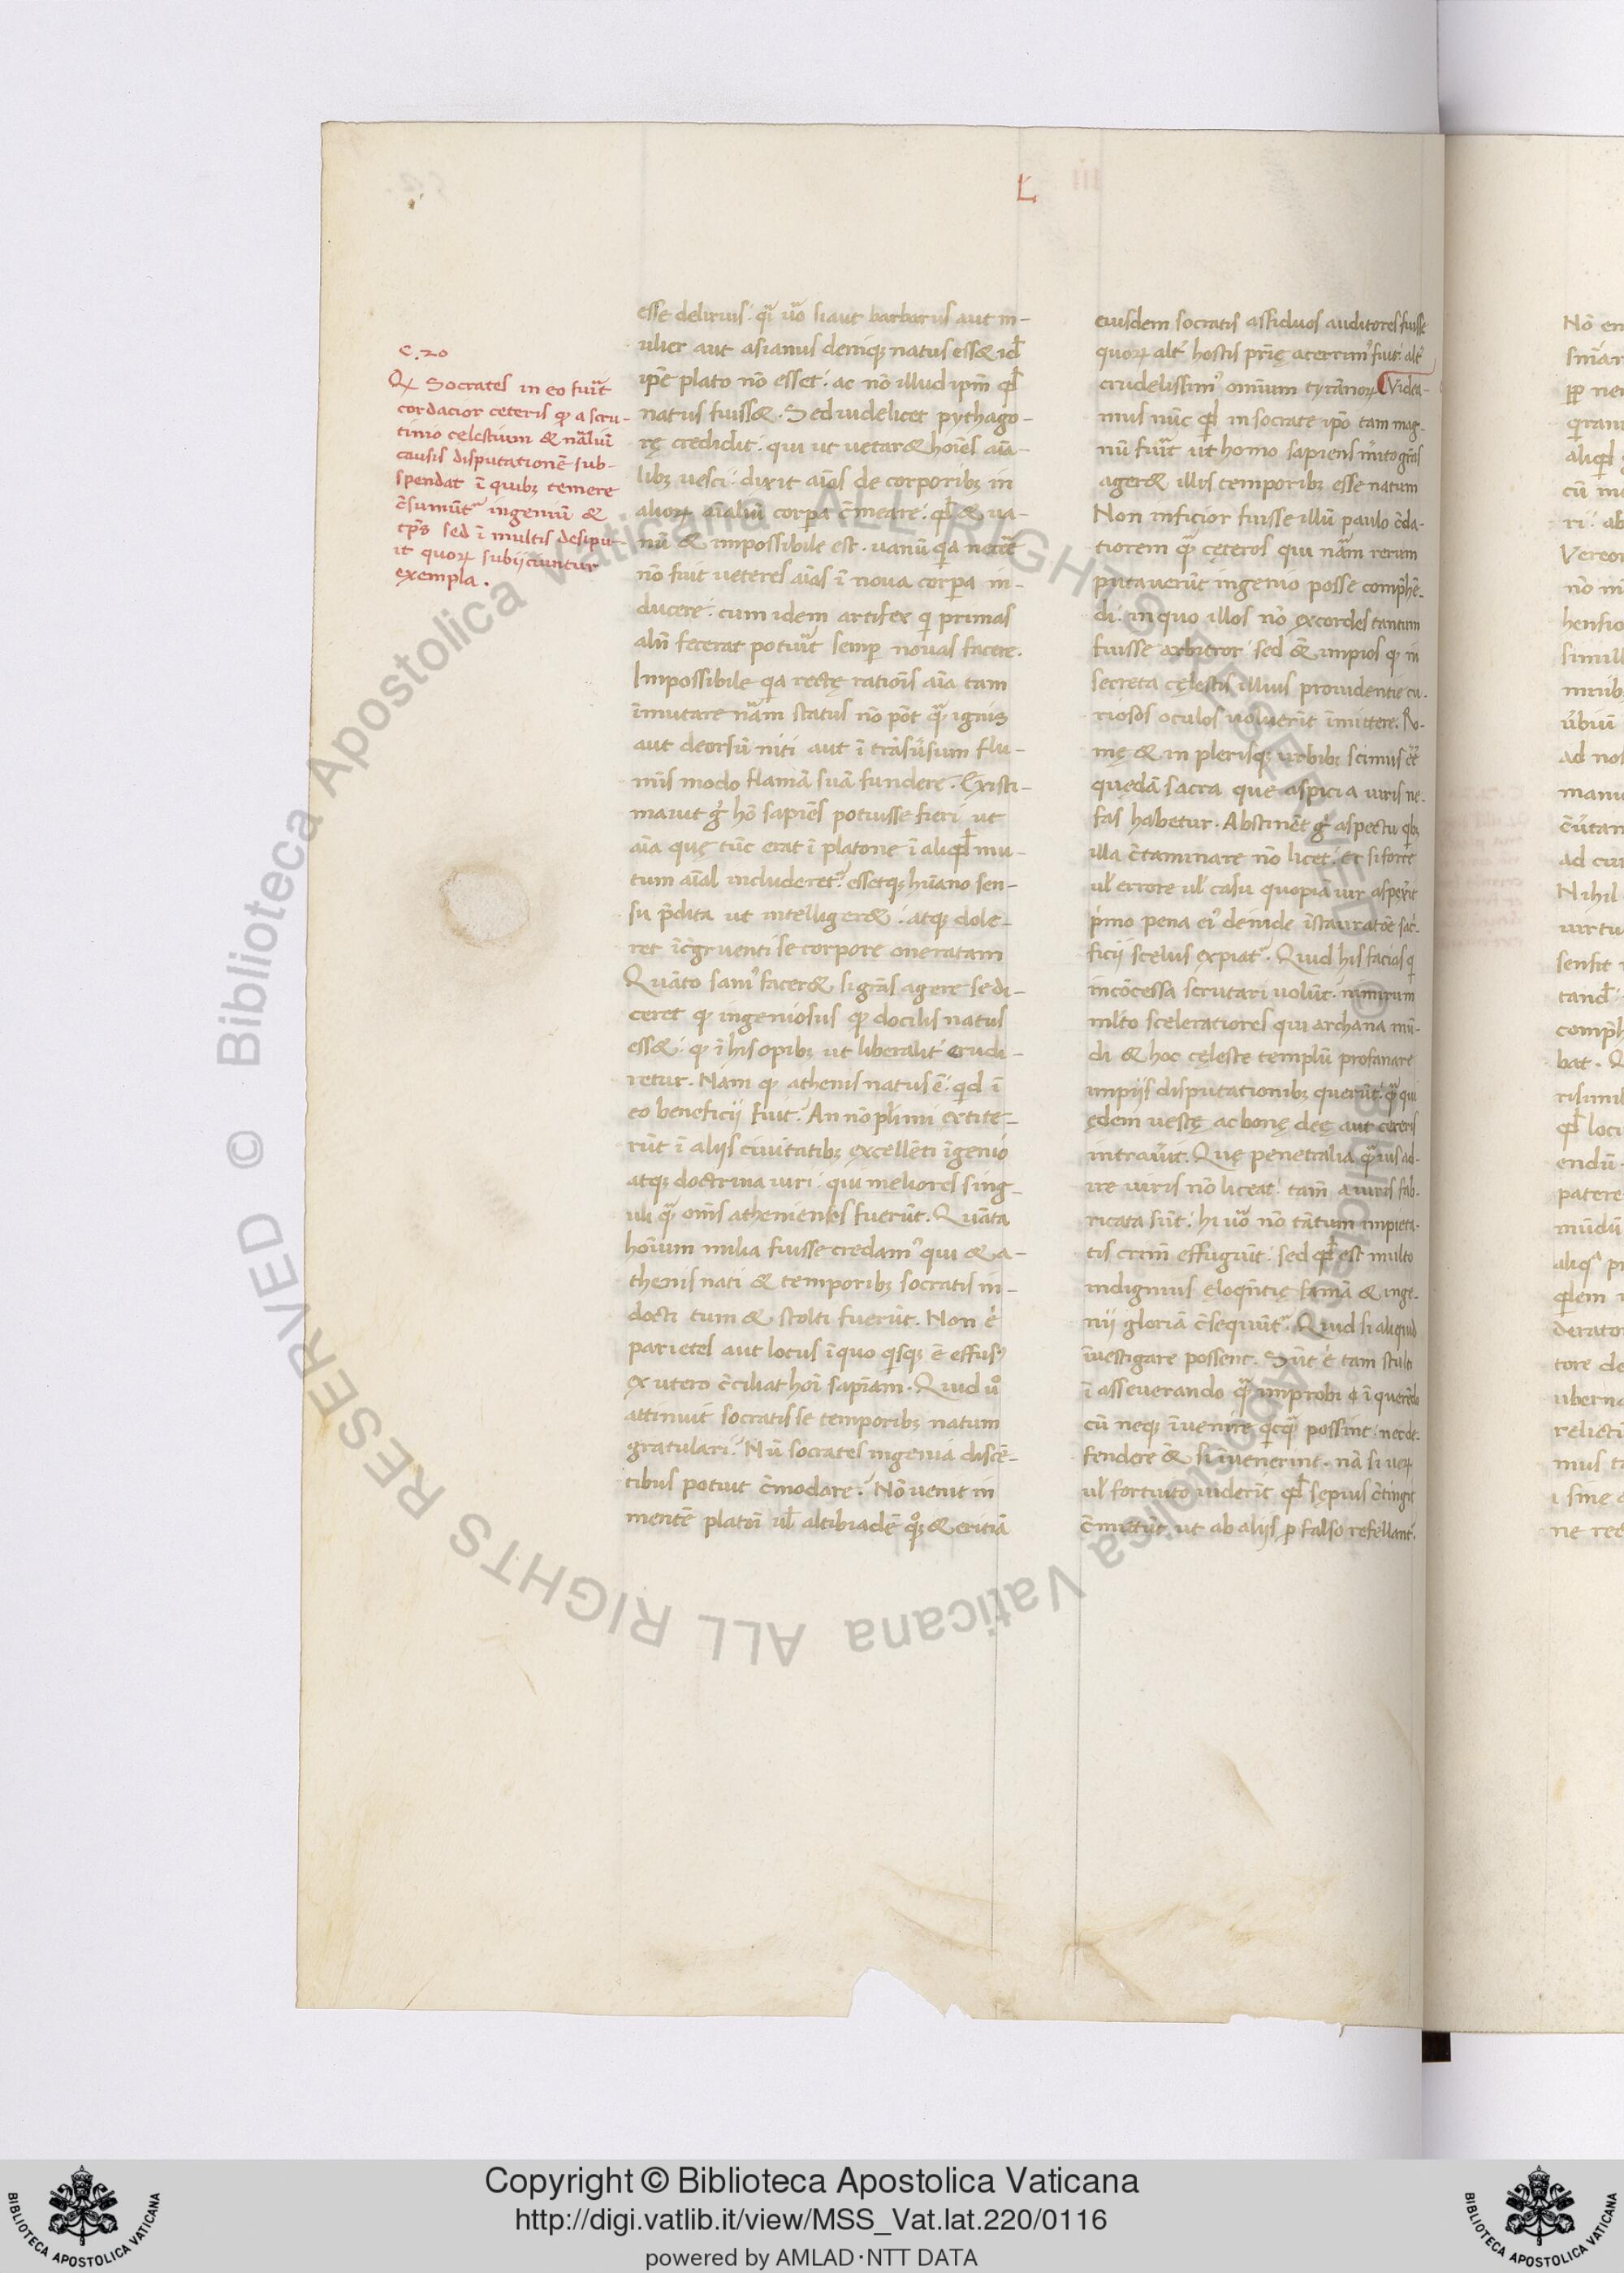 L
c. 20
Qꝙ Socrates in eo fuit̃
cordacior ceteris ꝙ a scru-
tinio celestium & nãliũ
causis disputationẽ sub-
spendat ĩ quibꝫ temere
c̃sumũt᷑ ingeniũ &
tp̃s sed ĩ multis desipu-
it quoꝝ subijciuntur
exempla.
esse delirius: qͥ ũo si aut barbarus aut m-
ulier aut asianus deniqꝫ natus ess& id̃
ip̃e plato nõ esset: ac nõ illud ip̃m qd̃
natus fuiss&. Sed uidelicet pythago-
rę credidit: qui ut uetar& hoĩes aĩa-
libꝫ uesci: dixit aĩas de corporibꝫ in
alioꝝ aĩaliũ corp̃a c̃meare: qd̃ & ua-
nũ & impossibile est. uanũ qa necẽe
nõ fuit ueteres aĩas ĩ noua corp̃a in-
ducere: cum idem artifex qͥ primas
aln̄ fecerat potuit̃ semp̱ nouas facere.
Impossibile qa rectę ratiõis aĩa tam
ĩmutare nãm status nõ põt qͣ̃ ignis
aut deorsũ niti aut ĩ trãsũsum flu-
mĩs modo flamã suã fundere. Existi-
mauit g̊ hõ sapiẽs potuisse fieri ut
aĩa quę tũc erat ĩ platone ĩ aliqd̃ mu-
tum aĩal includeret᷑: essetqꝫ hũano sen-
su p̃dita ut intelliger&: atqꝫ dole-
ret ĩc̃gruenti se corpore oneratam
Quãto saniꝰ facer& si grãs agere se di-
ceret ꝙ ingeniosus ꝙ docilis natus
ess&: ꝙ ĩ his opibꝫ ut liberalit̃ erudi-
retur. Nam ꝙ athenis natus ẽ: qͥd ĩ
eo beneficii fuit? An nõ plimi extite-
rũt ĩ aliis ciuitatibꝫ excellẽti ĩgenio
atqꝫ doctrina uiri: qui meliores sing-
uli qͣ̃ om̃s athenienses fuerũt. Quãta
hoĩum milia fuisse credamꝰ qui & a-
thenis nati & temporibꝫ socratis in-
docti tum & stolti fuerũt. Non ẽ
parietes aut locus ĩ quo qͥsqꝫ ẽ effusꝰ
ex utero c̃ciliat hoĩ sapiam. Quid ů
attinuit socratis se temporibꝫ natum
gratulari? Nũ socrates ingenia discẽ-
tibus potuit c̃modare? Nõ uenit in
mentẽ platõi ul̃ altibiadẽ qͦꝫ & critiã
eiusdem socratis assiduos auditores fuisse
quoꝝ alt̃ hostis prĩę acerrimꝰ fuit: alt̃
crudelissimꝰ omnium tyrãnoꝝ Videa-
mus nũc qd̃ in socrate ip̃o tam mag-
nũ fuit̃ ut homo sapiens m̃ito grãs
ager& illis temporibꝫ esse natum
Non inficior fuisse illũ paulo c̃da-
tiorem qͣ̃ cęteros qui nãm rerum
putauerũt ingenio posse comp̃hẽ-
di: in quo illos nõ excordes tantum
fuisse arbitror: sed & impios ꝙ in
secreta cęlestis illius prouidentie cu-
riosos oculos uoluerĩt ĩmittere. Ro-
mę & in plerisqꝫ urbibꝫ scimus ẽẽ
quędã sacra que aspici a uiris ne-
fas habetur. Abstinẽt g̊ aspectu qͥbꝫ
illa c̃taminare nõ licet: et si forte
ul̃ errore ul̃ casu quopiã uir aspexit
p̃mo pena eiꝰ deinde ĩstauratõe sac̃-
ficii scelus expiat᷑. Quid his facias qͥ
incõcessa scrutari uolũt. nimirum
ml̃to sceleratiores qui archana mũ-
di & hoc cęleste templũ profanare
impiis disputationibꝫ querũt: qͣ̃ qui
ędem uestę ac bonę deę aut cereris
intrauit̃. Quę penetralia qͣ̃uis ad-
ire uiris nõ liceat: tam̃ a uiris fab-
ricata sũt: hi ũo nõ tãtum impieta-
tis crim̃ effugiũt: sed qd̃ est multo
indignius ęloqntię famã & inge-
nii gloriã c̃sequũt᷑. Quid si aliquid
ĩuestigare possent. Sũt ẽ tam stulti
ĩ asseuerando qͣ̃ improbi ĩ querẽdo
cũ neqꝫ ĩuenire qͥcqͣ̃ possint: nec de-
fendere & si ĩuenerint. nã si ueꝝ
ul̃ fortuito uiderĩt qd̃ sępius c̃tingit
c̃mittũt ut ab aliis p falso refellant᷑.
Copyright © Biblioteca Apostolica Vaticana
http://digi.vatlib.it/view/MSS_Vat.lat.220/0116
powered by AMLAD·NTT DATA